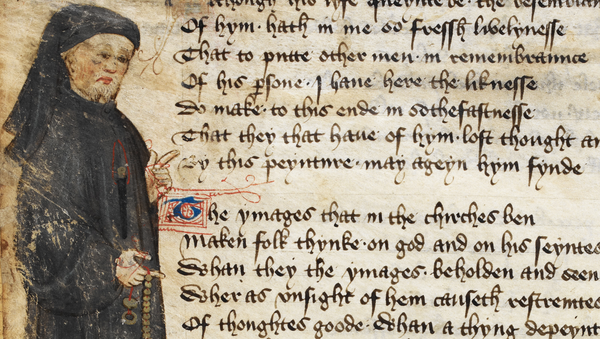 though his lyfe queynte be the resemblan
Of hym hath in me so fressh lively nesse
That to putte other men in remembraunce
Of his ꝑsone · I haue here the liknesse
Do make · to this ende in sothefastnesse
That they that haue of hym · lost thought an
By this peynture · may ageyn hym fynde
The ymages that in the chirches ben
Maken folk thynke · on god and on his seyntes
Whan they the ymages · beholden and seen
Wher as vnsight of hem causeth restreintes
Of thoughtes goode · Whan a thyng depeynt